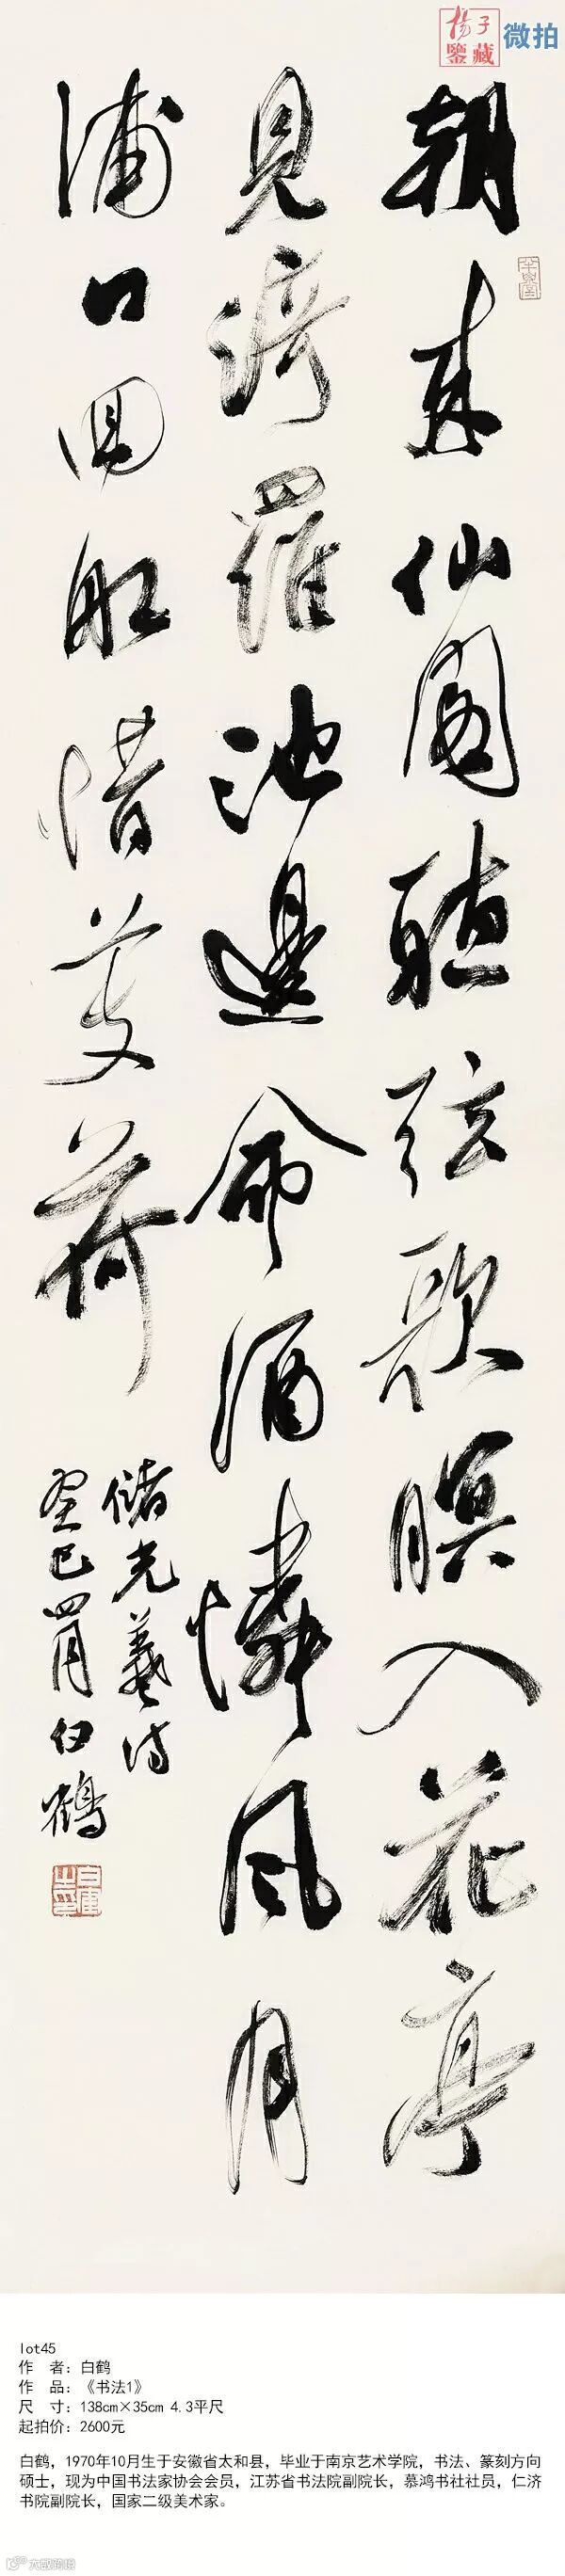 揚子
鑒藏
微拍
朝来仙閣聽弦歌暝入花亭
見綺羅池邊命酒憐風月
浦口回船惜芰荷
儲光羲诗
癸巳四月白鶴
lot45
作 者：白鹤
作 品：《书法1》
尺 寸：138cm×35cm 4.3平尺
起拍价：2600元
白鹤，1970年10月生于安徽省太和县，毕业于南京艺术学院，书法、篆刻方向
硕士，现为中国书法家协会会员，江苏省书法院副院长，慕鸿书社社员，仁济
书院副院长，国家二级美术家。